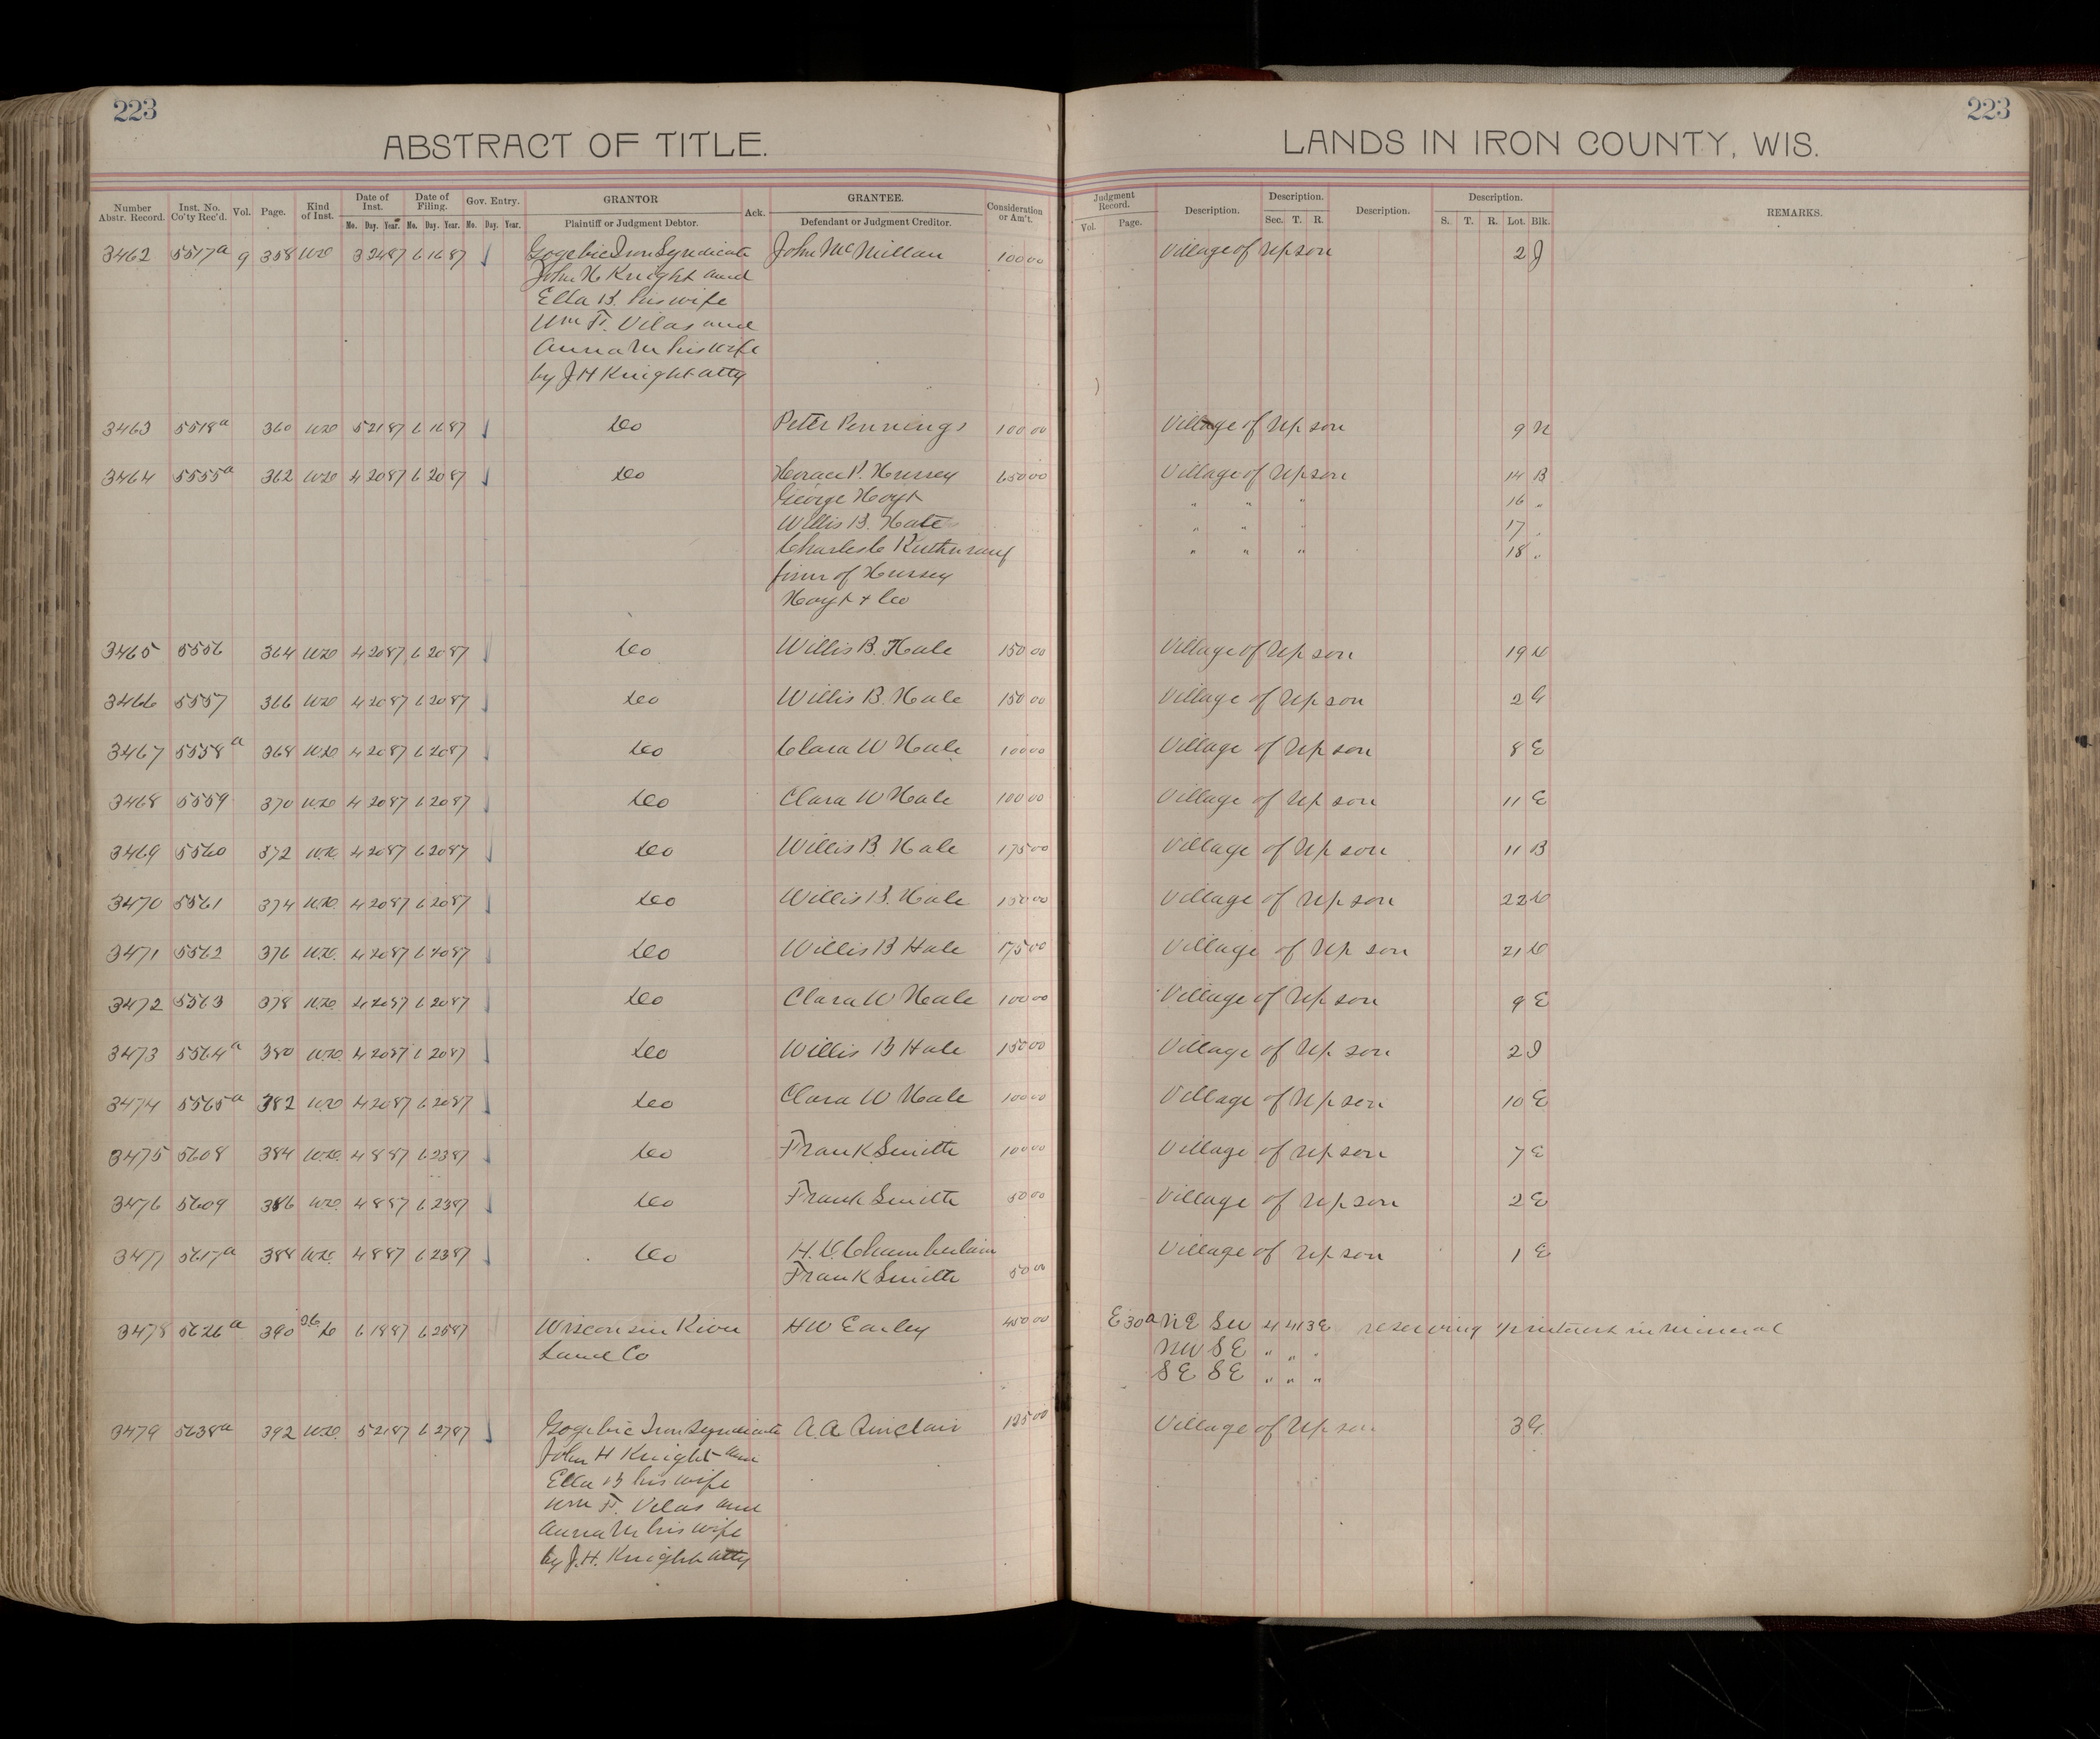 223
223
ABSTRACT OF TITLE.
LANDS IN IRON COUNTY, WIS.
Number Abstr. Record. Inst. No. Co'ty Rec'd. Vol. Page. Kind of Inst. Date of Inst. Mo. Day. Year. Date of Filing. Mo. Day. Year. Gov. Entry. Mo. Day. Year. GRANTOR Plaintiff or Judgment Debtor. Ack. GRANTEE. Defendant or Judgment Creditor. Consideration or Am't. Judgment Record. Vol. Page. Description. Description. Sec. T. R. Description. Description. S. T. R. Lot. Blk. REMARKS.
3462 5517a 9 358 WD 3 24 87 6 16 87 Gogebic Iron Syndicate John McMillan 100 00 Village of Upson 2 J
John H Knight and
Ella B. his wife
Wm F. Vilas and
Anna M his wife
by J H Knight atty
3463 5518a 360 WD 5 21 87 6 16 87 Do Peter Pennings 100 00 Village of Upson 9 N
3464 5555a 362 WD 4 20 87 6 20 87 Do Horace P. Hussey 650 00 Village of Upson 14 B
George Hoyt " " " 16 "
Willis B. Hale " " " 17 "
Charles C " " " 18 "
firm of Hussey
Hoyt + Co
3465 5556 364 WD 4 20 87 6 20 87 Do Willis B. Hale 150 00 Village of Upson 19
3466 5557 366 WD 4 20 87 6 20 87 Do Willis B. Hale 150 00 Village of Upson 2 G
3467 5558a 368 WD 4 20 87 6 20 87 Do Clara W Hale 100 00 Village of Upson 8 E
3468 5559 370 WD 4 20 87 6 20 87 Do Clara W Hale 100 00 Village of Upson 11 E
3469 5560 372 WD 4 20 87 6 20 87 Do Willis B. Hale 175 00 Village of Upson 11 B
3470 5561 374 WD 4 20 87 6 20 87 Do Willis B. Hale 150 00 Village of Upson 22
3471 5562 376 WD 4 20 87 6 20 87 Do Willis B Hale 175 00 Village of Upson 21
3472 5563 378 WD 4 20 87 6 20 87 Do Clara W Hale 100 00 Village of Upson 9 E
3473 5564a 380 WD 4 20 87 6 20 87 Do Willis B Hale 150 00 Village of Upson 2
3474 5565a 382 WD 4 20 87 6 20 87 Do Clara W Hale 100 00 Village of Upson 10 E
3475 5608 384 WD 4 8 87 6 23 87 Do Frank Smith 100 00 Village of Upson 7 E
3476 5609 386 WD 4 8 87 6 23 87 Do Frank Smith 50 00 Village of Upson 2 E
3477 5617a 388 WD 4 8 87 6 23 87 Do H. Chamberlain Village of Upson 1 E
Frank Smith 50 00
3478 5626a 390 6 19 87 6 25 87 Wisconsin River H W Earley 450 00 E 30a NE SW 4 41 3E reserving interest in Mineral
Land Co NW SE " " "
SE SE " " "
3479 5638a 392 WD 5 21 87 6 27 87 Gogebic Iron Syndicate A. A. Sinclair 125 00 Village of Upson 3 G
John H Knight and
Ella B his wife
Wm F. Vilas and
Anna M his wife
by J. H. Knight atty